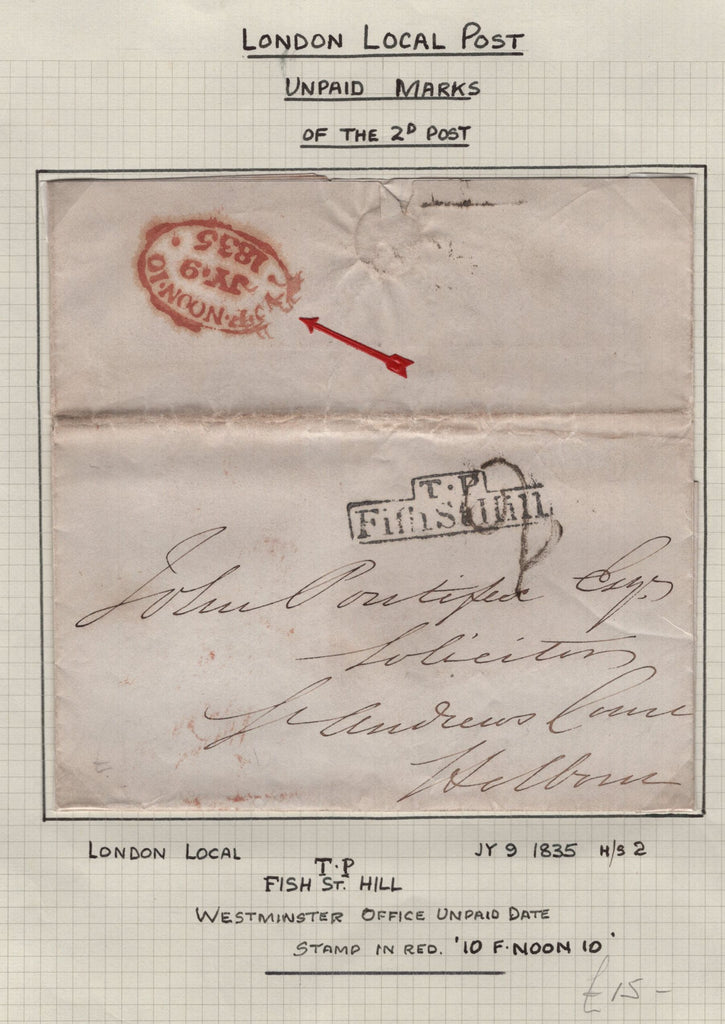 LONDON LOCAL POST
UNPAID MARKS
OF THE 2D POST
NOON·10
JY·9
1835
T·P
Fish St Hill
2
John Pontifex Esqr
Solicitor
St Andrews Court
Holborn
LONDON LOCAL
JY 9 1835 H/S 2
T·P
FISH ST. HILL
WESTMINSTER OFFICE UNPAID DATE
STAMP IN RED. '10 F·NOON 10'
£15-